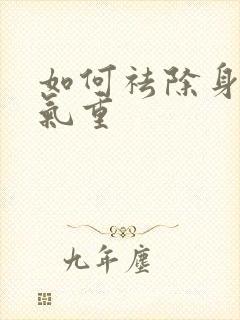 如何祛除身
氣重
九年塵